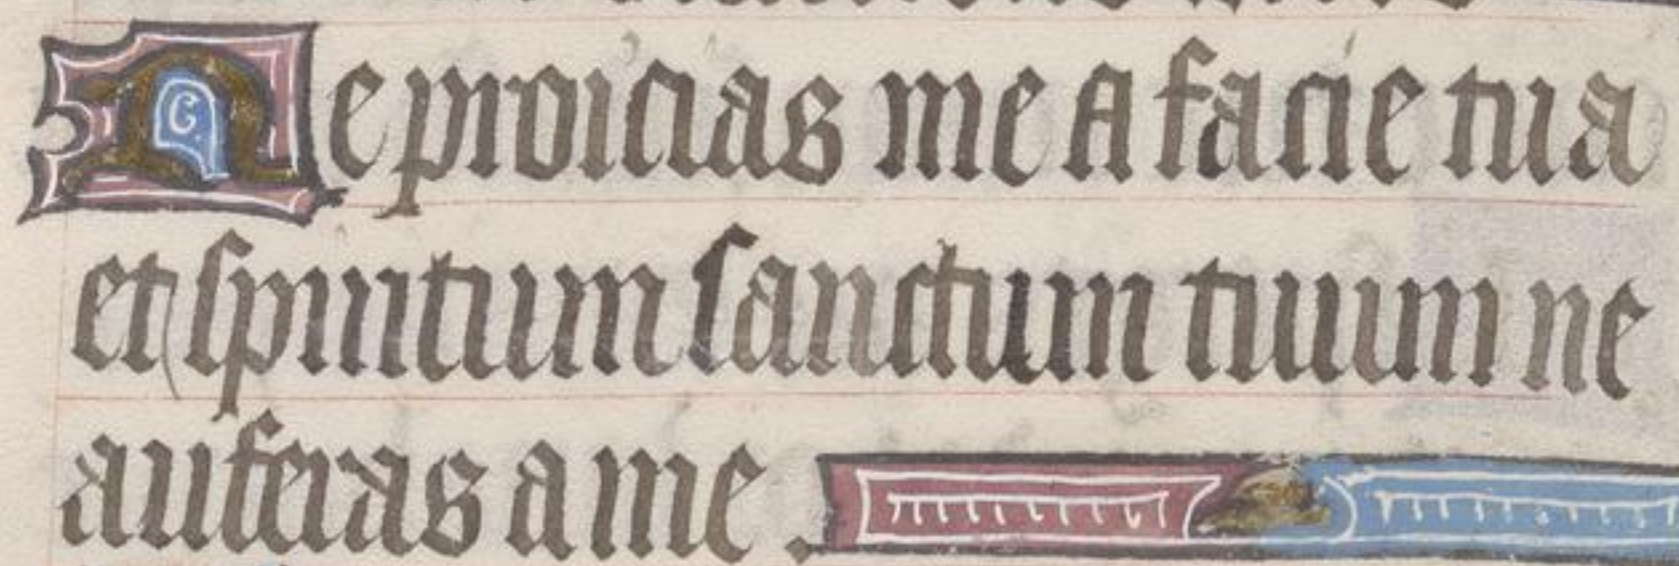 Ne proicias me a facie tua
et spiritum sanctum tuum ne
auferas a me.